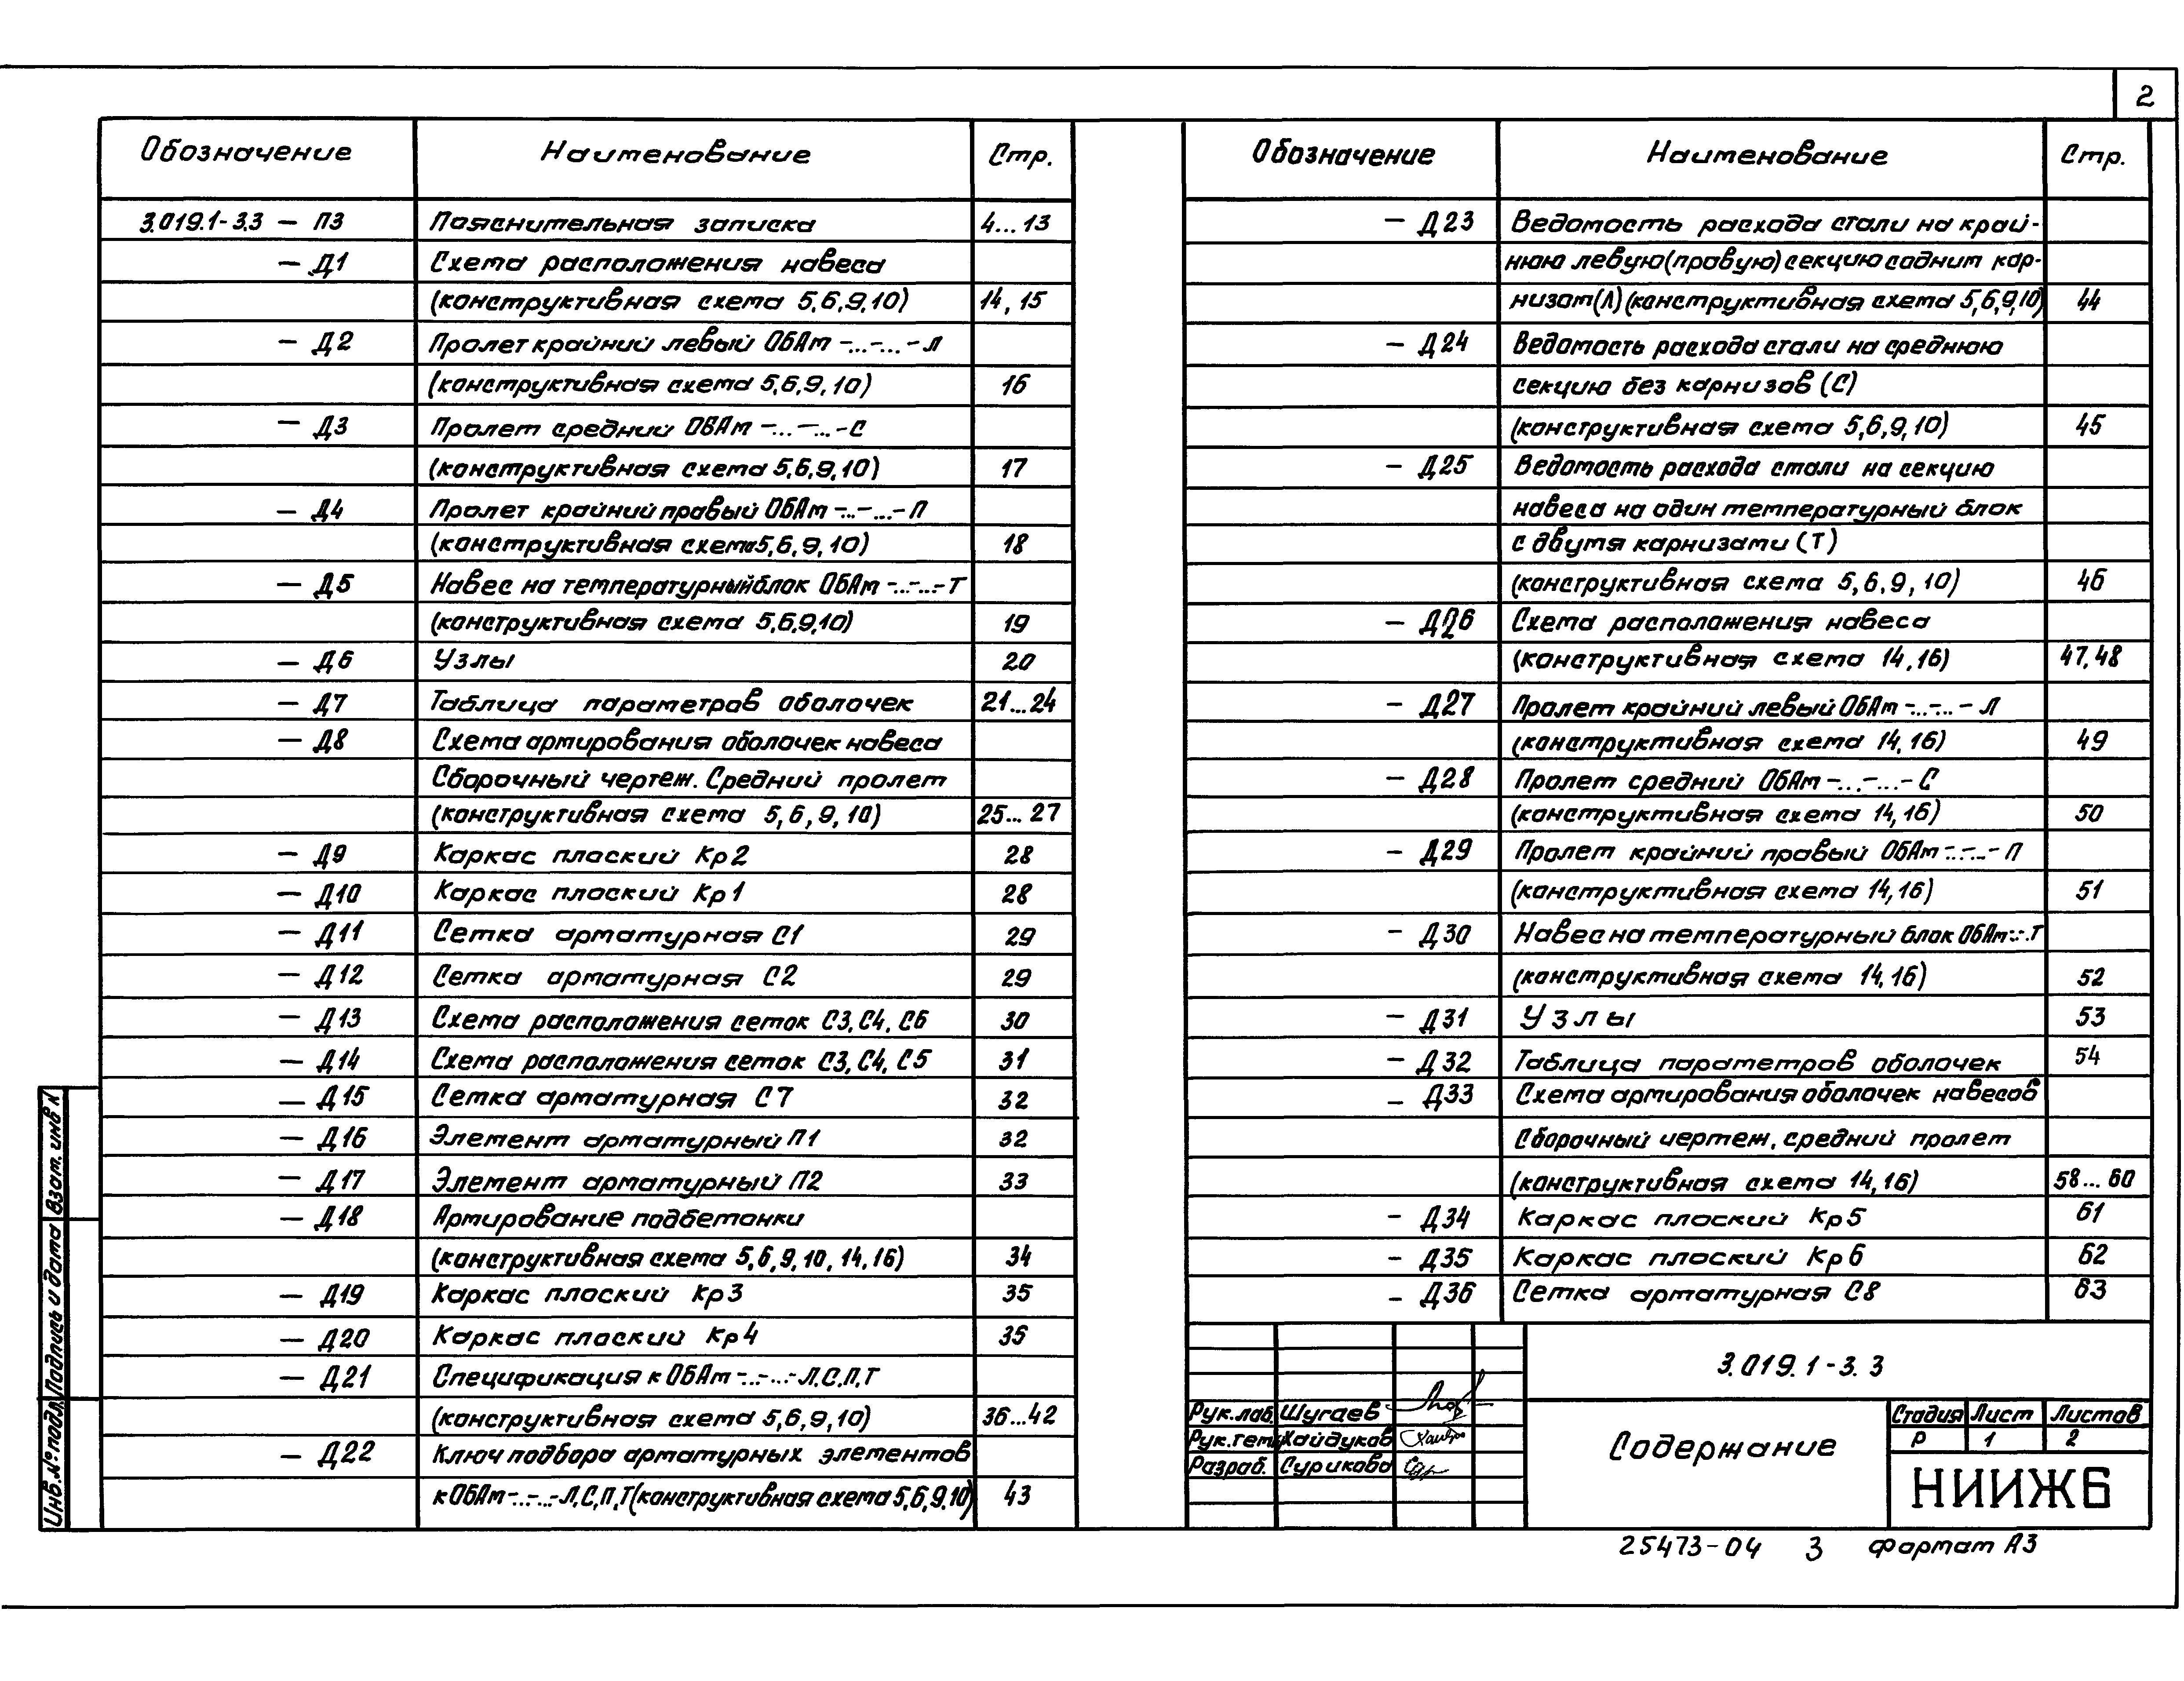 2
Обозначение Наименование Стр.
3.019.1-3.3 — ПЗ Пояснительная записка 4...13
— Д1 Схема расположения навеса
(конструктивная схема 5,6,9,10) 14, 15
— Д2 Пролет крайний левый ОБАт -...-...- Л
(конструктивная схема 5,6,9,10) 16
— Д3 Пролет средний ОБАт -...-...-С
(конструктивная схема 5,6,9,10) 17
— Д4 Пролет крайний правый ОБАт -...-...- П
(конструктивная схема 5,6,9,10) 18
— Д5 Навес на температурный блок ОБАт -...-...-Т
(конструктивная схема 5,6,9,10) 19
— Д6 Узлы 20
— Д7 Таблица параметров оболочек 21...24
— Д8 Схема армирования оболочек навеса
Сборочный чертеж. Средний пролет
(конструктивная схема 5,6,9,10) 25...27
— Д9 Каркас плоский Кр2 28
— Д10 Каркас плоский Кр1 28
— Д11 Сетка арматурная С1 29
— Д12 Сетка арматурная С2 29
— Д13 Схема расположения сеток С3, С4, С6 30
— Д14 Схема расположения сеток С3, С4, С5 31
— Д15 Сетка арматурная С7 32
— Д16 Элемент арматурный П1 32
— Д17 Элемент арматурный П2 33
— Д18 Армирование подбетонки
(конструктивная схема 5,6,9,10,14,16) 34
— Д19 Каркас плоский Кр3 35
— Д20 Каркас плоский Кр4 35
— Д21 Спецификация к ОБАт -...-...- Л,С,П,Т
(конструктивная схема 5,6,9,10) 36...42
— Д22 Ключ подбора арматурных элементов
к ОБАт -...-...- Л,С,П,Т (конструктивная схема 5,6,9,10) 43
Обозначение Наименование Стр.
— Д23 Ведомость расхода стали на край-
нюю левую (правую) секцию с одним кар-
низом (Л) (конструктивная схема 5,6,9,10) 44
— Д24 Ведомость расхода стали на среднюю
секцию без карнизов (С)
(конструктивная схема 5,6,9,10) 45
— Д25 Ведомость расхода стали на секцию
навеса на один температурный блок
с двумя карнизами (Т)
(конструктивная схема 5,6,9,10) 46
— Д26 Схема расположения навеса
(конструктивная схема 14,16) 47,48
— Д27 Пролет крайний левый ОБАт -...-...- Л
(конструктивная схема 14,16) 49
— Д28 Пролет средний ОБАт -...-...- С
(конструктивная схема 14,16) 50
— Д29 Пролет крайний правый ОБАт -...-...- П
(конструктивная схема 14,16) 51
- Д30 Навес на температурный блок ОБАт -..-..Т
(конструктивная схема 14,16) 52
— Д31 Узлы 53
— Д32 Таблица параметров оболочек 54
— Д33 Схема армирования оболочек навесов
Сборочный чертеж, средний пролет
(конструктивная схема 14,16) 58...60
— Д34 Каркас плоский Кр5 61
— Д35 Каркас плоский Кр6 62
— Д36 Сетка арматурная С8 63
3.019.1-3.3
Рук.лаб. Шугаев
Рук.тем. Хайдуков
Разраб. Сурикова
Содержание
Стадия Лист Листов
Р 1 2
НИИЖБ
Инв.№подл. Подпись и дата Взам. инв №
25473-04 3 Формат А3